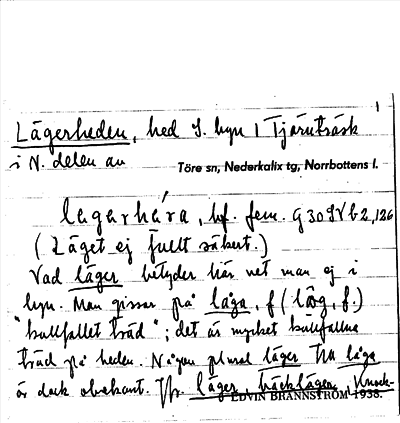 1
Lägerheden, hed S. byn 1 Tjärnträsk
i N. delen av
Töre sn, Nederkalix tg, Norrbottens l.
bf. fem. G30SVb2,126
(Läget ej fullt säkert.)
Vad läger betyder här vet man ej i
byn. Man gissar på låga, f (låg, f.)
"kullfallet träd"; det är mycket kullfallna
träd på heden. Någon plural läger till låga
är dock obekant. Jfr läger, bäcklägen, Knock-
EDVIN BRÄNNSTRÖM 1938.